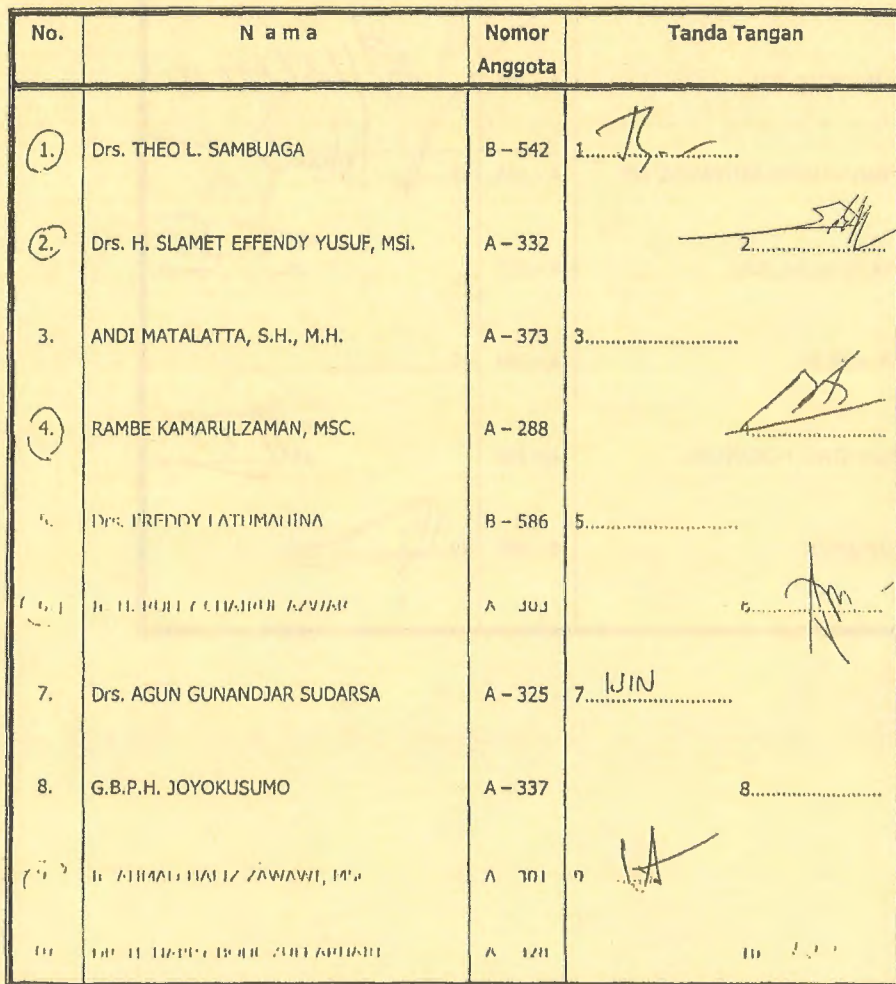 No. N a m a Nomor Anggota Tanda Tangan
1. Drs. THEO L. SAMBUAGA B – 542 1.
2. Drs. H. SLAMET EFFENDY YUSUF, MSi. A – 332 2.
3. ANDI MATALATTA, S.H., M.H. A – 373 3.
4. RAMBE KAMARULZAMAN, MSC. A – 288 4.
Drs. FREDDY LATUMAHINA B – 586 5.
6. AZWAR A 303 6.
7. Drs. AGUN GUNANDJAR SUDARSA A – 325 7. IJIN
8. G.B.P.H. JOYOKUSUMO A – 337 8.
AHMAD HAFIZ ZAWAWI, A 301 9
A